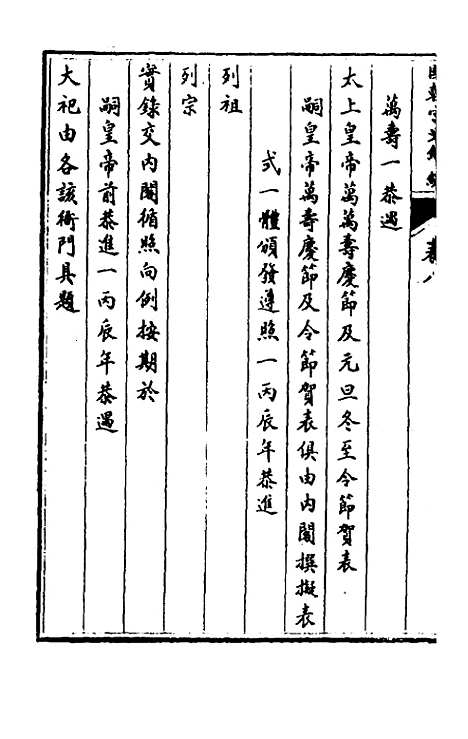 萬壽一恭遇
太上皇帝萬萬壽慶節及元旦冬至令節賀表
嗣皇帝萬壽慶節及令節賀表俱由內閣撰擬表
式一體頒發遵照一丙辰年恭進
列祖
列宗
實錄交內閣循照向例按期於
嗣皇帝前恭進一丙辰年恭遇
大祀由各該衙門具題